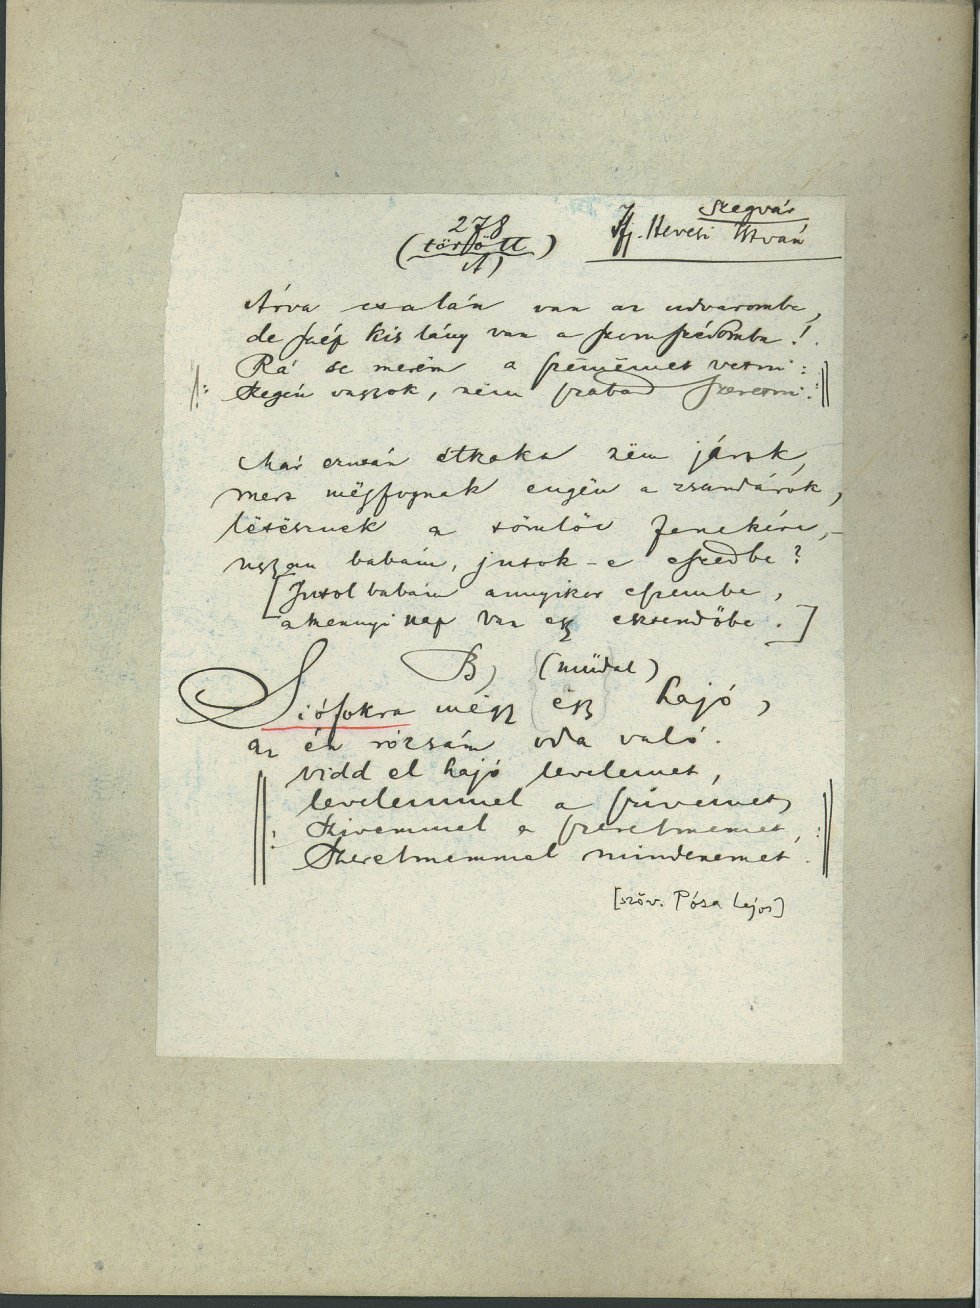 Szegvár
Ifj. Hevesi István
278
(törlött)
A)
Árva csalán van az udvaromba,
de szép kis lány van a szomszédomba!
Rá se merëm a szëmëmet vetni:
Szegén vagyok, nëm szabad szeretni.
Már ezután étkaka nëm járok,
mert mëgfognak engëm a zsandárok,
lëtësznek a tömlöc fenekére,
ugyan babám, jutok-e eszedbe?
[Jutol babám annyikor eszembe,
amennyi nap van egy esztendőbe.]
B) (műdal)
Siófokra mëgy ëgy hajó,
az én rózsám oda való.
Vidd el hajó levelemet,
levelemmel a szívemet,
Szivemmel a szerelmemet,
Szerelmemmel mindenemet.
[szöv. Pósa Lajos]